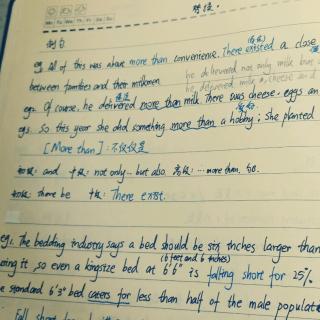 Mo Tu We Th Fr Sa Su
eg. All of this was about more than convenience. There existed a close
between families and their milkmen. he delivered not only milk but
he delivered milk, cheese and
eg2. Of course, he delivered more than milk. There was cheese, eggs an
eg3. So this year she did something more than a hobby: She planted
[More than]: 不仅仅是
初级: and 中级: not only… but also. 高级: … more than, 句.
初级: there be 中级: There exist.
eg1. The bedding industry says a bed should be six inches larger than
(6 feet and 6 inches)
ing it, so even a kingsize bed at 6'6" is falling short for 25%.
e standard 6'3" bed caters for less than half of the male populat
Fall short